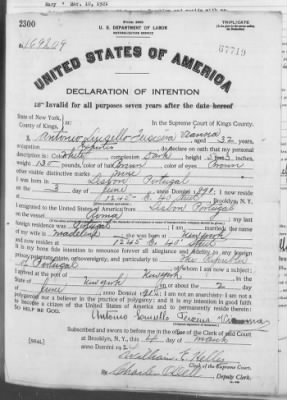 Mary - Mar. 10, 1924
2300
U. S. DEPARTMENT OF LABOR
NATURALIZATION SERVICE
TRIPLICATE
67719
UNITED STATES OF AMERICA
DECLARATION OF INTENTION
Invalid for all purposes seven years after the date hereof
State of New York,
County of Kings,
ss:
In the Supreme Court of Kings County.
I, Antonio Teixeira Vianna, aged 32 years,
occupation, do declare on oath that my personal
description is: Color White, complexion Dark, height 5 feet 3 inches,
weight 130 pounds, color of hair Brown, color of eyes Brown
other visible distinctive marks none
I was born in Lisbon Portugal
on the 3 day of June, anno Domini 1891; I now reside
at 1245 E. 40 Street, Brooklyn, N.Y.
I emigrated to the United States of America from Lisbon Portugal
on the vessel Roma; my last
foreign residence was Portugal
my wife is Madeline
and now resides at 1245 E. 40 Street
It is my bona fide intention to renounce forever all allegiance and fidelity to any foreign
prince, potentate, state, or sovereignty, and particularly to The Republic
of Portugal, of whom I am now a subject;
I arrived at the port of New York
of New York, on or about the 2 day
of June, anno Domini; I am not an anarchist; I am not a
polygamist nor a believer in the practice of polygamy; and it is my intention in good faith
to become a citizen of the United States of America and to permanently reside therein:
SO HELP ME GOD.
Antonio Teixeira Vianna
Subscribed and sworn to before me in the office of the Clerk of said Court
at Brooklyn, N.Y., this day of March
anno Domini
[SEAL]
William E. Kelly
Clerk of the Supreme Court.
By Charles, Deputy Clerk.